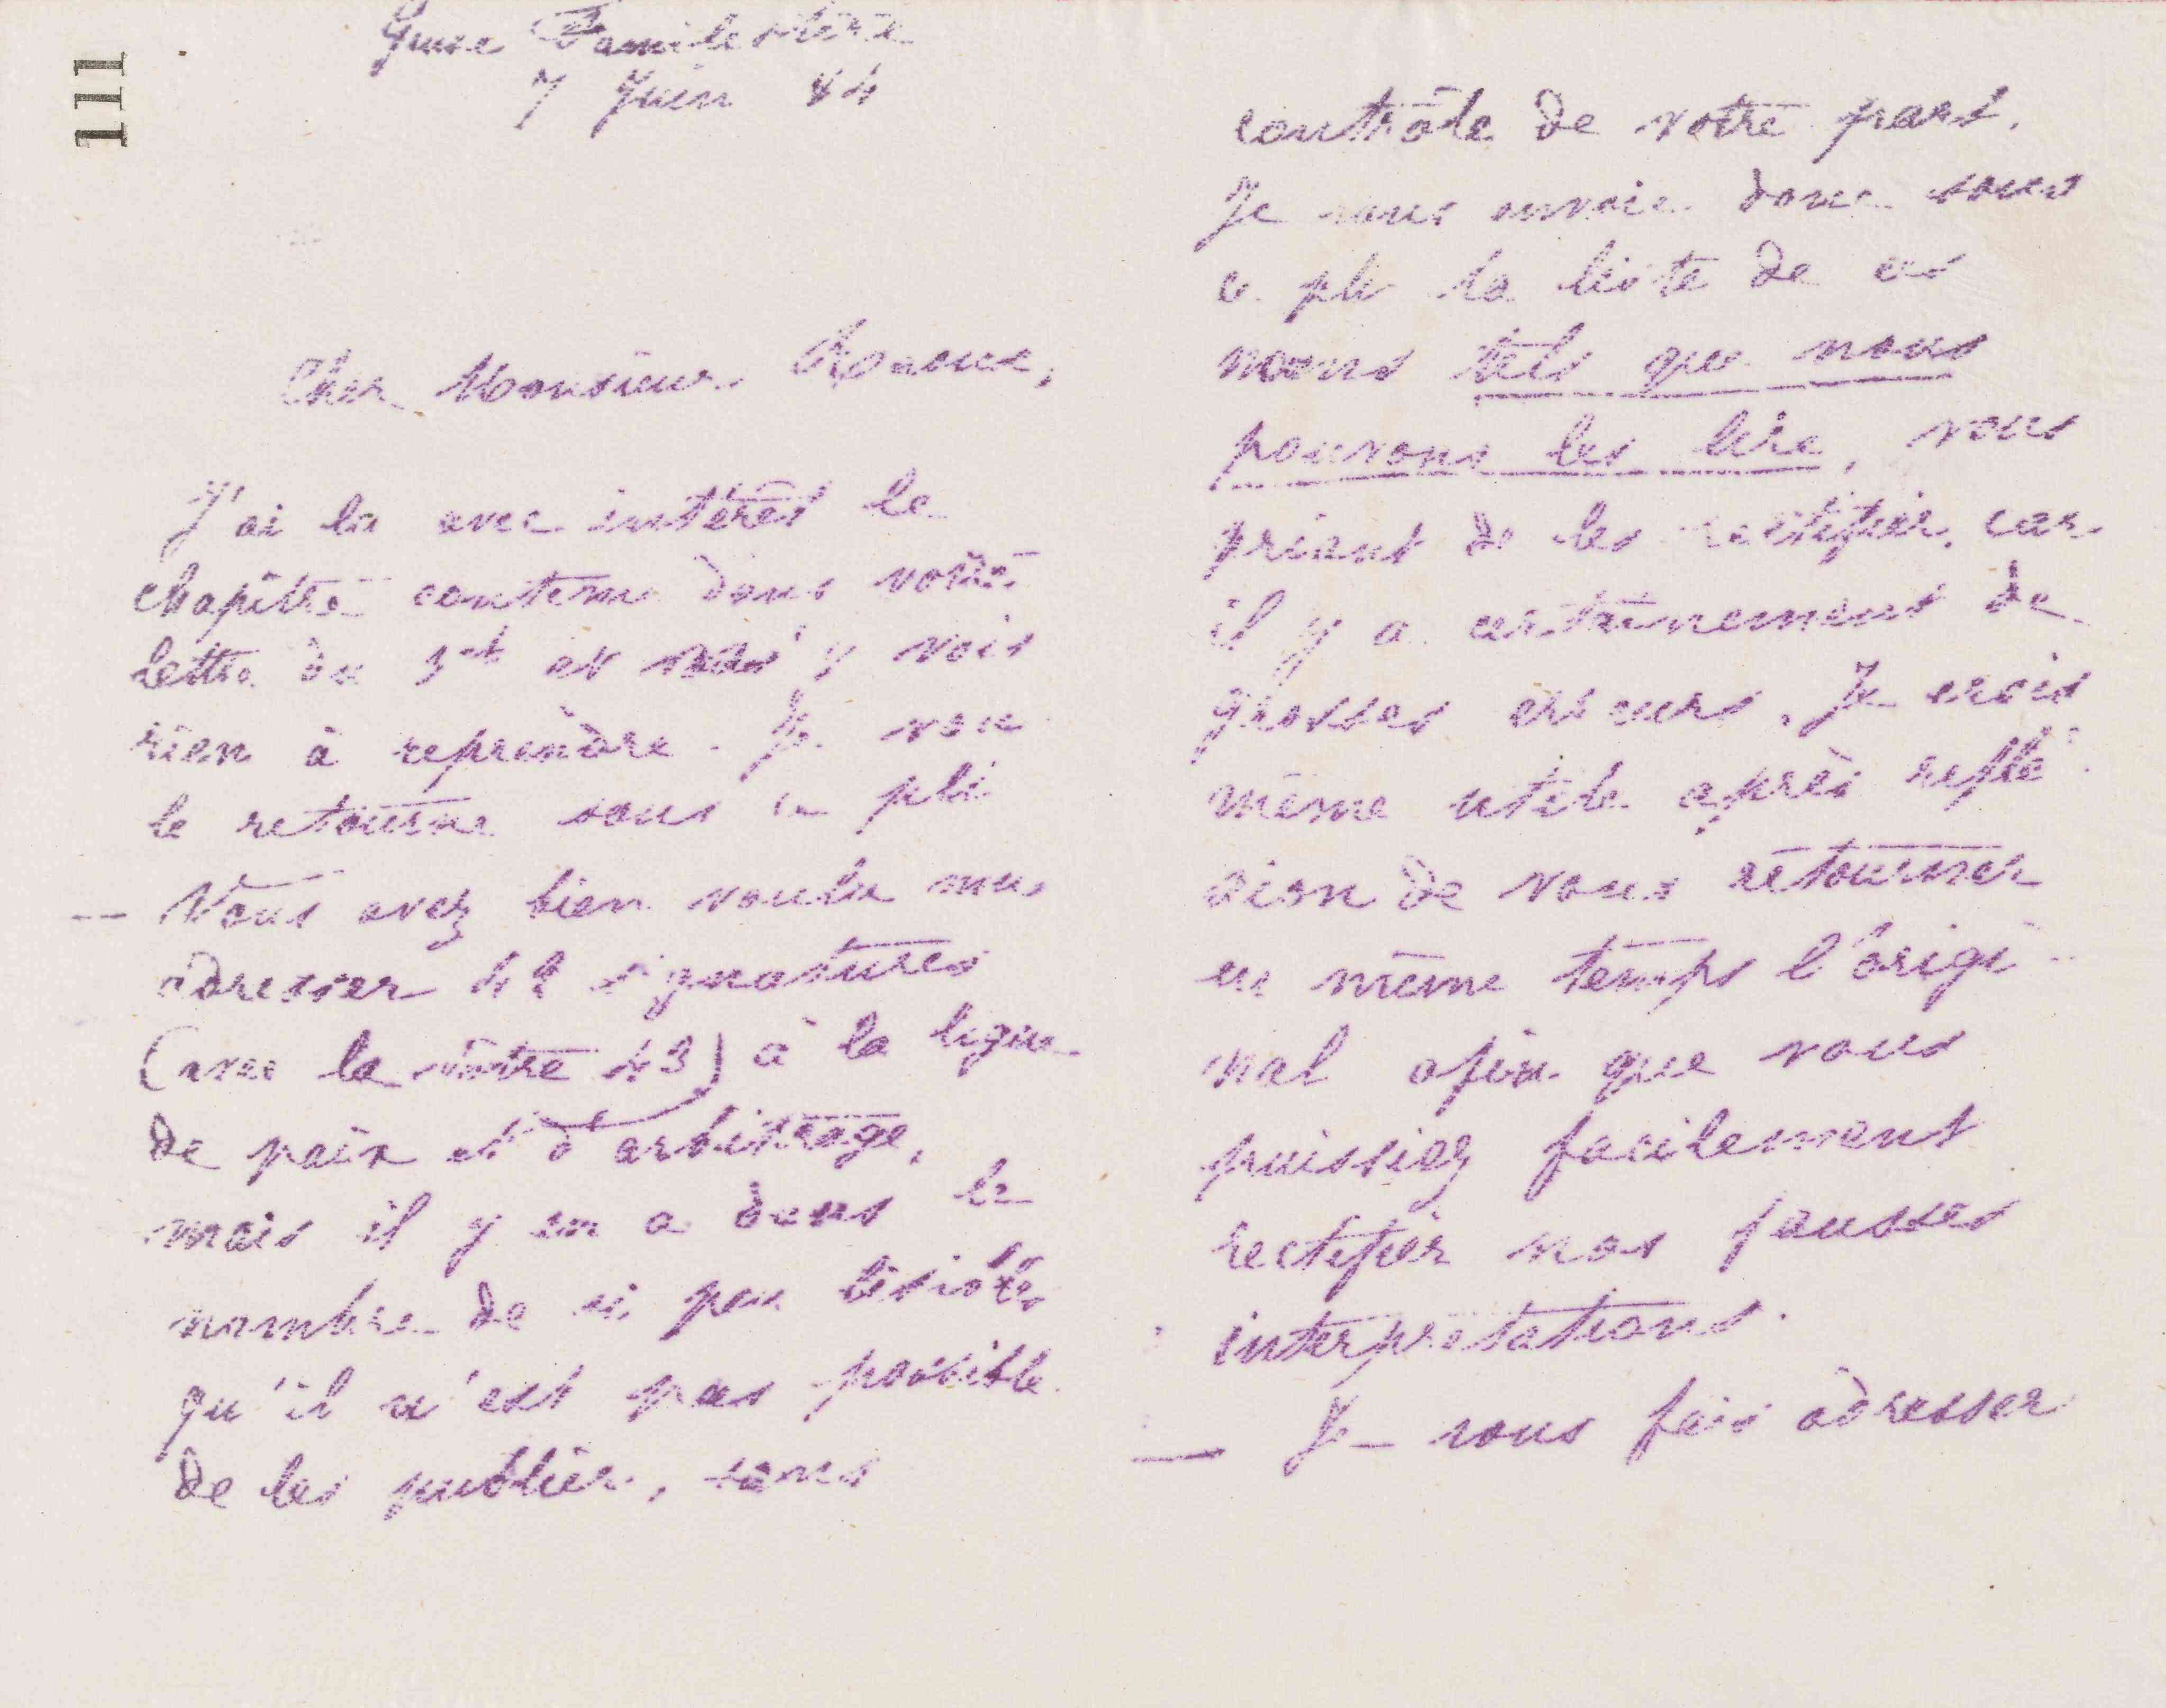 111
Guise Familistère
7 Juin 84
Cher Monsieur Raoux,
J'ai lu avec intérêt le
chapitre contenu dans votre
lettre du 5 et n'y vois
rien à reprendre. Je vous
le retourne sous ce pli
-- Vous avez bien voulu me
adresser 42 signatures
(avec la vôtre 43) à la ligue
de paix et d'arbitrage,
mais il y en a dans le
nombre de si peu lisibles
qu'il n'est pas possible
de les publier, sans
contrôle de votre part.
Je vous envoie donc sous
ce pli la liste de ces
noms tels que nous
pouvons les lire, vous
priant de les rectifier, car
il y a certainement de
grosses erreurs. Je crois
même utile après réflé-
xion de vous retourner
en même temps l'origi-
nal afin que vous
puissiez facilement
rectifier nos fausses
interprétations.
— Je vous fais adresser